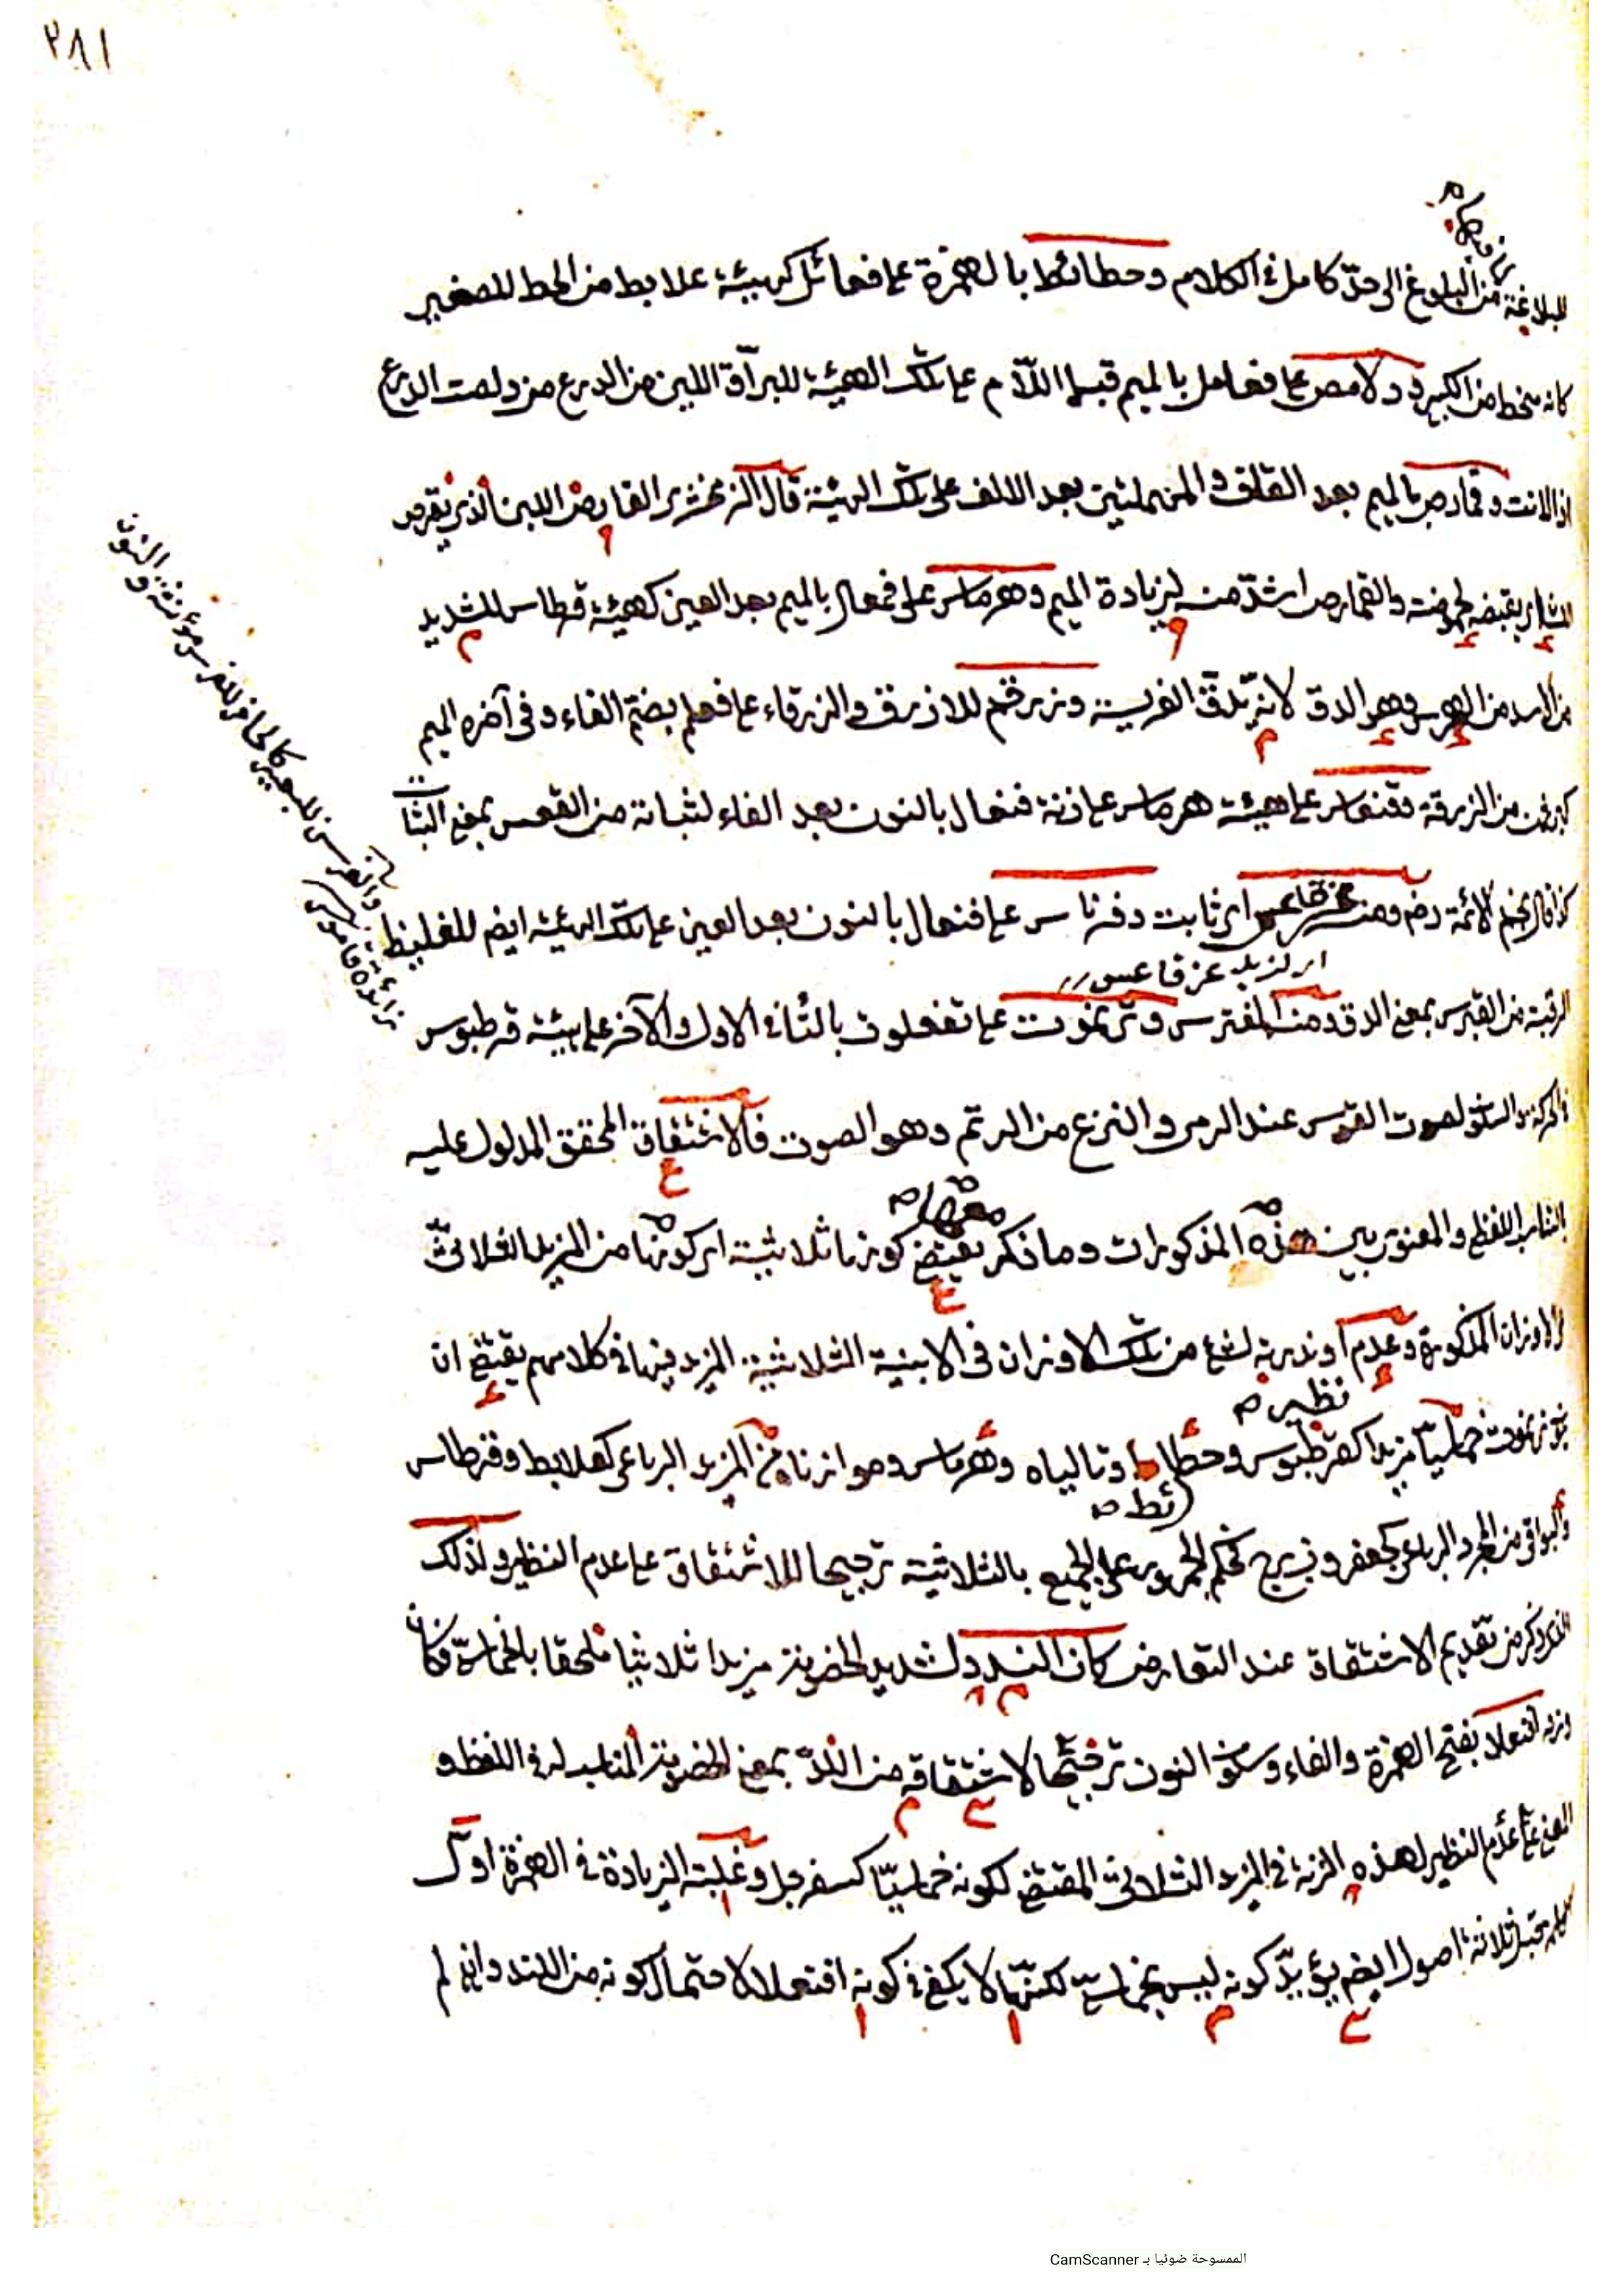 ٢٨١
للبلاغة من البلوغ الى حدّ كامل في الكلام وحطائط بالهمزة على فعائل كهيئة علابط من الحط للصغير
كانه منحط من الكبير ودلامص على فعامل بالميم قبل اللام على تلك الهيئة للبراقة اللين من الدرع من دلصت الدرع
اذا لانت وقمارص بالميم بعد القاف والمهملتين بعد الالف على تلك الهيئة قال الزمخشري القارص اللبن الذي يقرص
اللسان اي يقبضه لحموضته والقمارص اشدّ منه لزيادة الميم وهرماس على فعمال بالميم بعد العين كهيئة قرطاس للشديد
من الاسد من الهرس وهو الدق لانه يدقّ الفريسة وزرقم للازرق والزرقاء على فعلم بضم الفاء وفي آخره الميم
كبرثن من الزرقة وقنعاس على هيئة هرماس على زنة فنعال بالنون بعد الفاء لثباته من القعس بمعنى الثبات
كذا قال نجم الائمة رض ومنه عز قاعس اي ثابت وفرناس على فعنال بالنون بعد العين على تلك الهيئة ايضا للغليظ
اي لزيد عز قاعس
الرقبة من الفرس بمعنى الدق ومنه المفترس وترنموت على تفعلوت بالتاء في الاول والآخر على هيئة قرطبوس
في الحركة والسكون لصوت القوس عند الرمي والنزع من الرنم وهو الصوت فالاشتقاق المحقق المدلول عليه
بالتناسب اللفظي والمعنوي بين هذه المذكورات وما ذكر معها يقتضي كونها ثلاثية اي كونها من المزيد الثلاثي
في الاوزان المذكورة وعدم او ندرة لشيء من تلك الاوزان في الابنية الثلاثية المزيد فيها في كلامهم يقتضي ان
يكون ترنموت خماسيا مزيدا نظير كقرطبوس وحطائط وتالياه وهرماس وموازناه من المزيد الرباعي كعلابط وقرطاس
والبواقي من المجرد الرباعي كجعفر وزبرج فحكم الجمهور على الجميع بالثلاثية ترجيحا للاشتقاق على عدم النظير ولذلك
الذي ذكر من تقديم الاشتقاق عند التعارض كان النددا لشديد الخصومة مزيدا ثلاثيا ملحقا بالخماسي فكان
وزنه افنعلا بفتح الهمزة والفاء وسكون النون ترجيحا لاشتقاقه من اللدّ بمعنى الخصومة المناسب له في اللفظ و
المعنى على عدم النظير لهذه الزنة في المزيد الثلاثي المقتضي لكونه خماسيّا كسفرجل وغلبته الزيادة في الهمزة اوّل
كلمة قبل ثلاثة اصول ايضا يؤيّد كونه ليس بخماسي لكنّها لا يكفي في كونه افنعلا لاحتمال كونه من اللند وان لم
والفرسن للبعير كالحافر للفرس مؤنثة والنون زائدة قاموس
الممسوحة ضوئيا بـ CamScanner